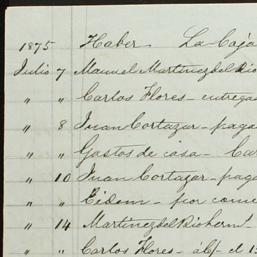 1875 Haber. La Caja
Julio 7 Manuel Martinez del Rio
" " Carlos Flores - entrega
" 8 Juan Cortazar - paga
" " Gastos de casa -
" 10 Juan Cortazar - pag
" " Eidem - por
" 14 Martinez del Rio
" " Carlos Flores -